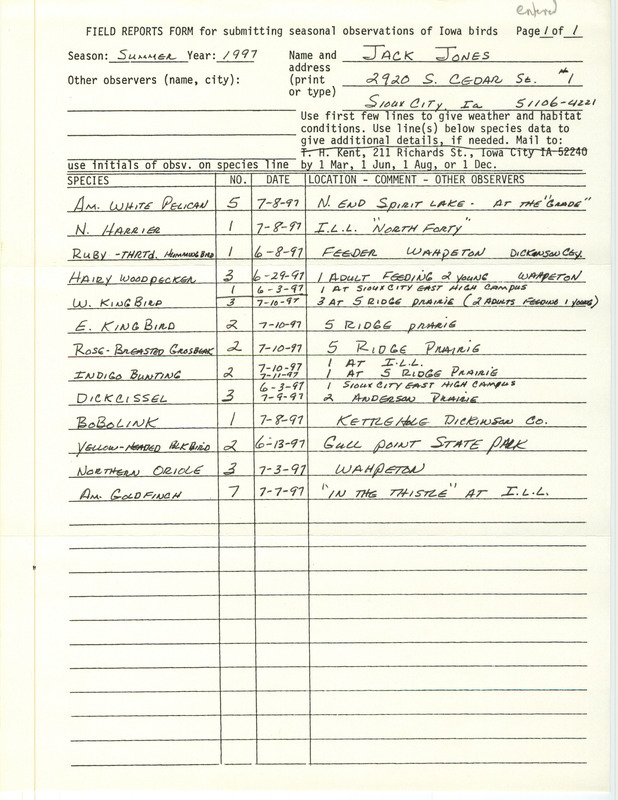 entered
FIELD REPORTS FORM for submitting seasonal observations of Iowa birds Page 1 of 1
Season: Summer Year: 1997 Name and Jack Jones
address
Other observers (name, city): (print 2920 S. Cedar St. #1
or type)
Sioux City, Ia 51106-4221
Use first few lines to give weather and habitat
conditions. Use line(s) below species data to
give additional details, if needed. Mail to:
T. H. Kent, 211 Richards St., Iowa City IA 52240
use initials of obsv. on species line by 1 Mar, 1 Jun, 1 Aug, or 1 Dec.
SPECIES NO. DATE LOCATION - COMMENT - OTHER OBSERVERS
Am. White Pelican 5 7-8-97 N. End Spirit Lake - at the "Grade"
N. Harrier 1 7-8-97 I.L.L. "North Forty"
Ruby-Thrtd. Hummingbird 1 6-8-97 Feeder Wahpeton Dickinson Cty.
Hairy Woodpecker 3 6-29-97 1 Adult feeding 2 young Wahpeton
1 6-3-97 1 at Sioux City East High Campus
W. Kingbird 3 7-10-97 3 at 5 Ridge Prairie (2 adults feeding 1 young)
E. Kingbird 2 7-10-97 5 Ridge Prarie
Rose-Breasted Grosbeak 2 7-10-97 5 Ridge Prairie
7-10-97 1 at I.L.L.
Indigo Bunting 2 7-11-97 1 at 5 Ridge Prairie
6-3-97 1 Sioux City East High Campus
Dickcissel 3 7-9-97 2 Anderson Prairie
Bobolink 1 7-8-97 Kettlehole Dickinson Co.
Yellow-Headed Blkbird 2 6-13-97 Gull Point State Park
Northern Oriole 3 7-3-97 Wahpeton
Am. Goldfinch 7 7-7-97 "In the Thistle" at I.L.L.